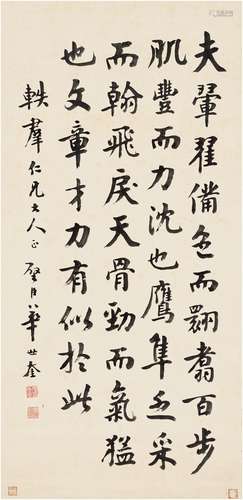 夫翬翟備色而翾翥百步
肌豐而力沈也鷹隼乏采
而翰飛戾天骨勁而氣猛
也文章才力有似於此
軼羣仁兄大人正 璧臣華世奎